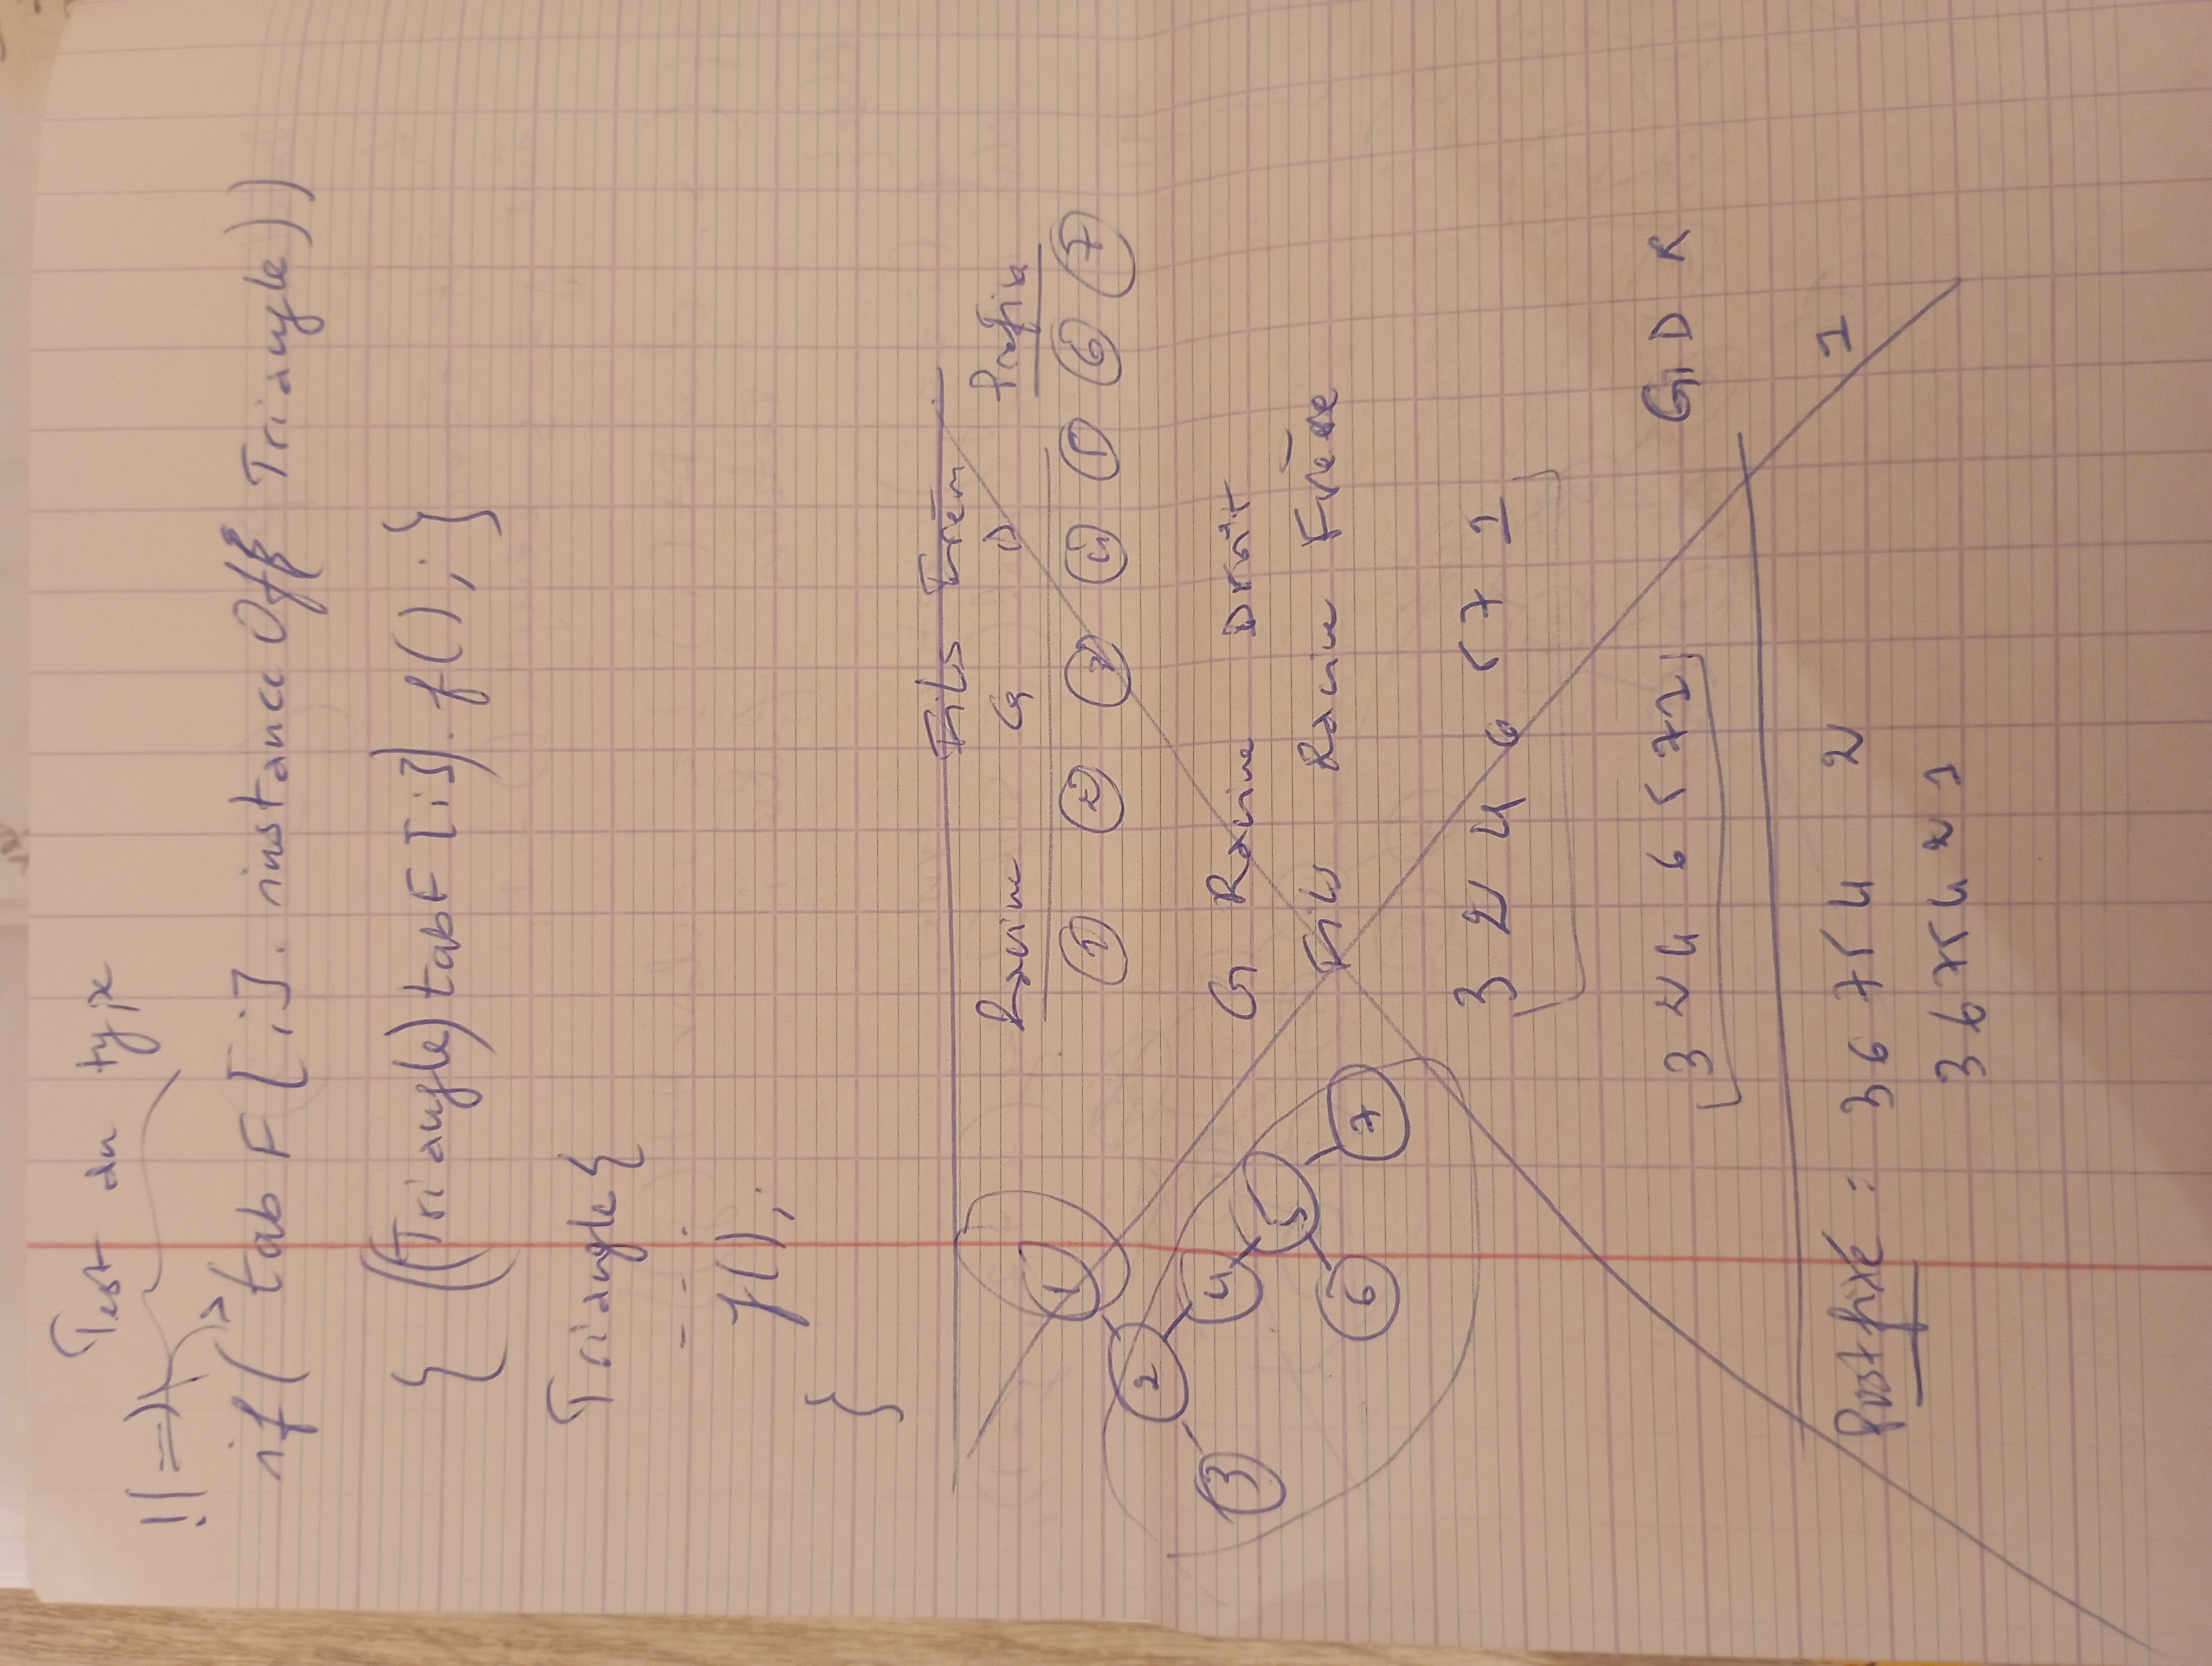 Test du type
!( =>
if( tabF[i]. instanceOf Triangle))
{ ((Triangle)tabF[i]).f(); }
Triangle{
- - -
f();
}
Fils Frère
Racine G D Prefixe
1 2 3 4 5 6 7
1
2
3 4
5
6 7
G Racine Droit
Fils Racine Frère
3 2 4 6 5 7 1
3 2 4 6 5 7 1 G D R
Postfixé : 3 6 7 5 4 2 1
3 6 7 5 4 2 1